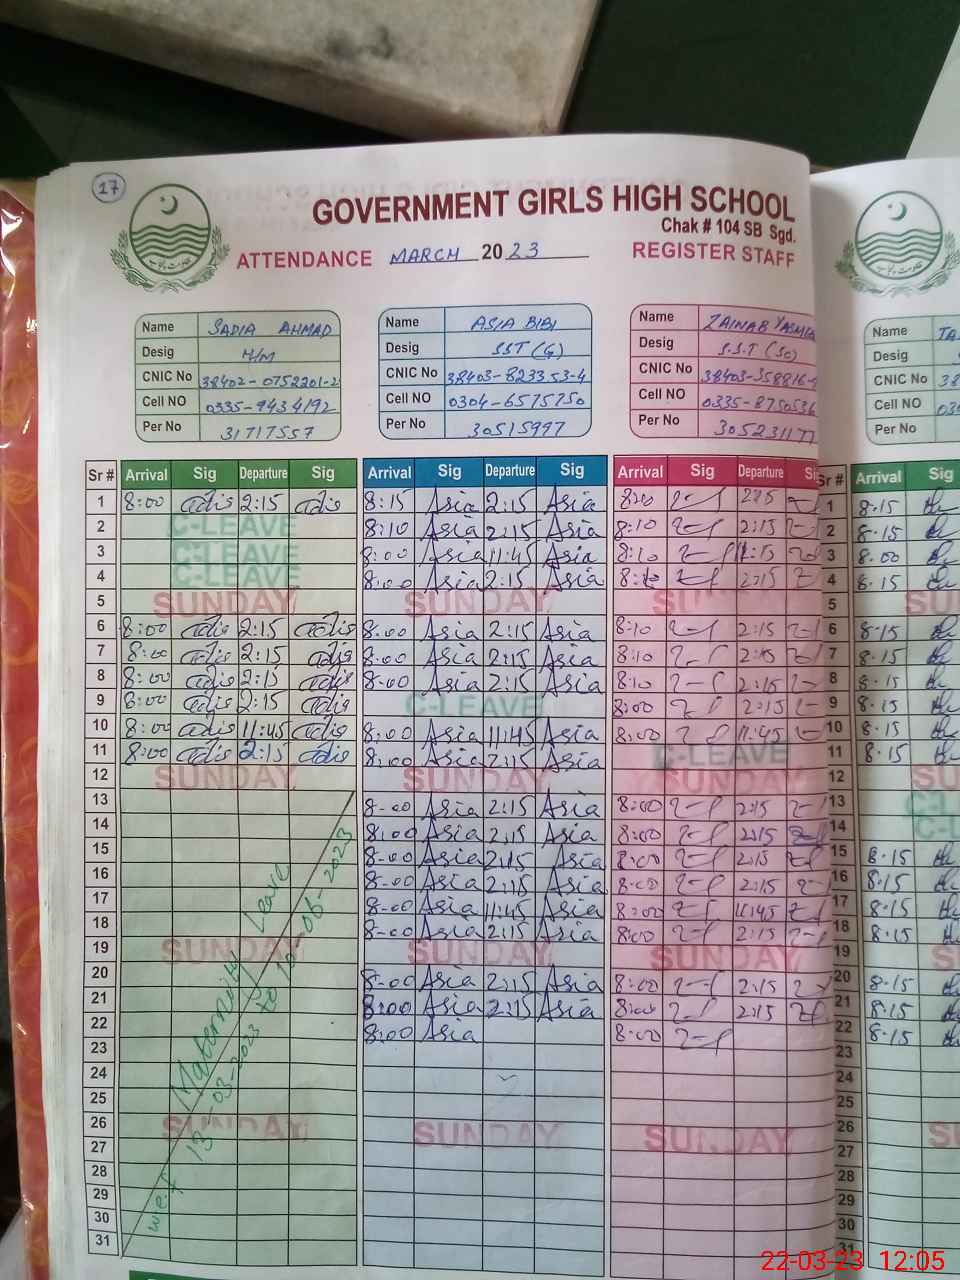 17
GOVERNMENT GIRLS HIGH SCHOOL
Chak # 104 SB Sgd.
ATTENDANCE MARCH 2023 REGISTER STAFF
Name SADIA AHMAD Name ASIA BIBI Name ZAINAB
Desig H/M Desig SST (G) Desig S.S.T (Sc)
CNIC No 38402-0752201-2 CNIC No 38403-823353-4 CNIC No 38403-358816-
Cell NO 0335-9434192 Cell NO 0304-6575750 Cell NO 0335-8750536
Per No 31717557 Per No 30515997 Per No 30523117
Name TA
Desig
CNIC No 38
Cell NO 03
Per No
Sr # Arrival Sig Departure Sig Arrival Sig Departure Sig Arrival Sig Departure Sig Sr # Arrival Sig
1 8:00 2:15 8:15 Asia 2:15 Asia 8:00 2:15 1 8-15
2 C-LEAVE 8:10 Asia 2:15 Asia 8:10 2:15 2 8-15
3 C-LEAVE 8:00 Asia 11:45 Asia 8:10 3 8-00
4 C-LEAVE 8:00 Asia 2:15 Asia 8:10 2:15 4 8-15
5 SUNDAY SUNDAY SUNDAY 5 SU
6 8:00 2:15 8:00 Asia 2:15 Asia 8:10 2:15 6 8-15
7 8:00 2:15 8-00 Asia 2:15 Asia 8:10 2:15 7 8-15
8 8:00 2:15 8-00 Asia 2:15 Asia 8:10 2:15 8 8-15
9 8:00 2:15 C-LEAVE 8:00 2:15 9 8-15
10 8:00 11:45 8:00 Asia 11:45 Asia 8:00 11:45 10 8-15
11 8:00 2:15 8:00 Asia 2:15 Asia C-LEAVE 11 8-15
12 SUNDAY SUNDAY SUNDAY 12 SU
13 8-00 Asia 2:15 Asia 8:00 2:15 13 C-L
14 8:00 Asia 2:15 Asia 8:00 2:15 14 C-L
15 8-00 Asia 2:15 Asia 8:00 2:15 15 8-15
16 8-00 Asia 2:15 Asia 8:00 2:15 16 8-15
17 8-00 Asia 11:45 Asia 8:00 11:45 17 8-15
18 8-00 Asia 2:15 Asia 8:00 2:15 18 8-15
19 SUNDAY SUNDAY SUNDAY 19
20 8-00 Asia 2:15 Asia 8:00 2:15 20 8-15
21 8:00 Asia 2:15 Asia 8:00 2:15 21 8-15
22 8:00 Asia 8:00 22 8-15
23 23
24 24
25 25
26 SUNDAY SUNDAY SUNDAY 26 SU
27 27
28 28
29 29
30 30
31 31
Maternity Leave
w.e.f 13-03-2023 to 10-06-2023
22-03-23 12:05